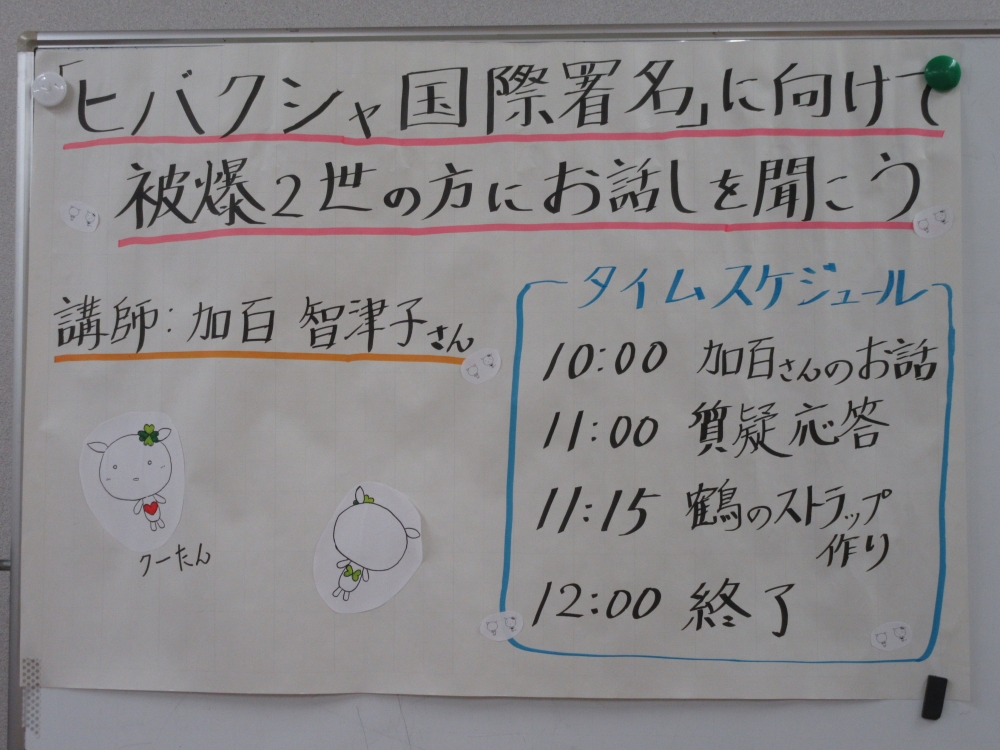 「ヒバクシャ国際署名」に向けて
被爆2世の方にお話しを聞こう
講師：加百 智津子さん
タイムスケジュール
10:00 加百さんのお話
11:00 質疑応答
11:15 鶴のストラップ
作り
12:00 終了
クーたん